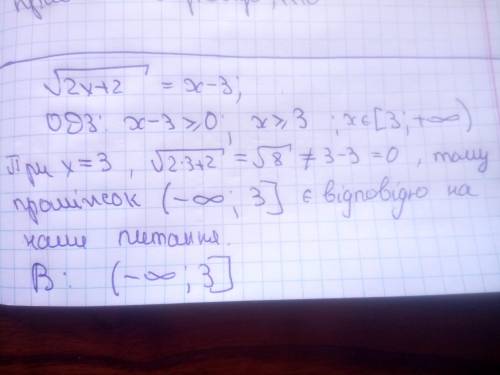 √2x+2 = x-3;
ОДЗ: x-3≥0; x≥3 ; xє[3;+∞)
При x=3, √2·3+2 = √8 ≠ 3-3 =0, тому
проміжок (-∞; 3] є відповідю на
наше питання.
В: (-∞; 3]